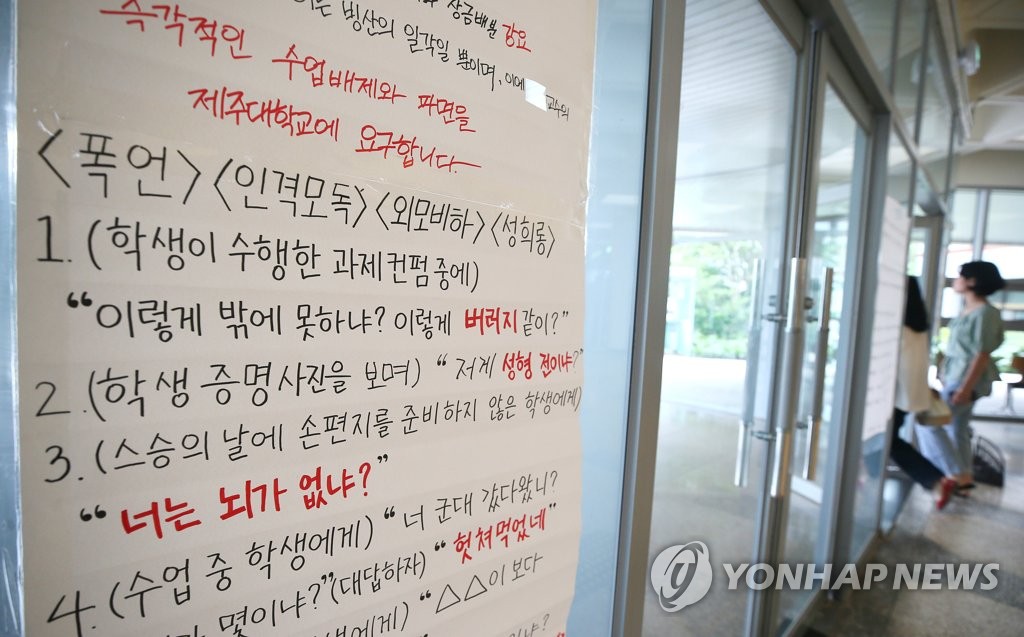 상금배분 강요
빙산의 일각일 뿐이며, 이에
교수의
즉각적인 수업배제와 파면을
제주대학교에 요구합니다.
<폭언><인격모독><외모비하><성희롱>
1. (학생이 수행한 과제 컨펌 중에)
“이렇게 밖에 못하냐? 이렇게 버러지같이?”
2. (학생 증명사진을 보며) “저게 성형 전이냐?”
3. (스승의 날에 손편지를 준비하지 않은 학생에게)
“너는 뇌가 없냐?”
4. (수업 중 학생에게) “너 군대 갔다왔니?
몇이냐?” (대답하자) “헛쳐먹었네”
에게) “△△이 보다
YONHAP NEWS